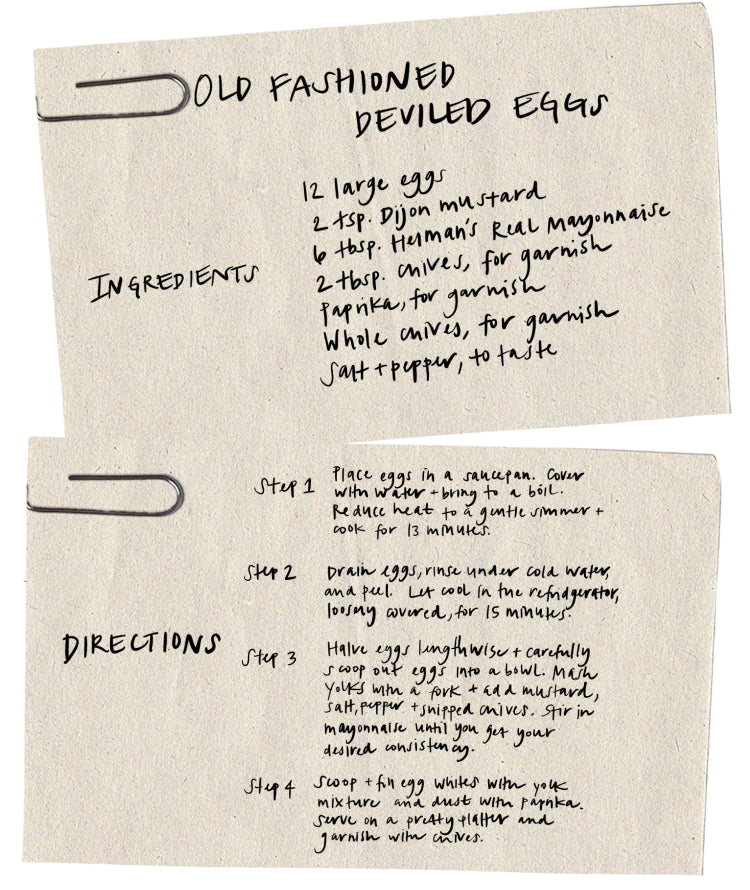 OLD FASHIONED
DEVILED EGGS
INGREDIENTS
12 large eggs
2 tsp. Dijon mustard
6 tbsp. Helman's Real Mayonnaise
2 tbsp. chives, for garnish
Paprika, for garnish
Whole chives, for garnish
Salt + pepper, to taste
DIRECTIONS
Step 1
Place eggs in a saucepan. Cover
with water + bring to a boil.
Reduce heat to a gentle simmer +
cook for 13 minutes.
Step 2
Drain eggs, rinse under cold water,
and peel. Let cool in the refridgerator,
loosely covered, for 15 minutes.
Step 3
Halve eggs lengthwise + carefully
scoop out eggs into a bowl. Mash
yolks with a fork + add mustard,
salt, pepper + snipped chives. Stir in
mayonnaise until you get your
desired consistency.
Step 4
Scoop + fill egg whites with yolk
mixture and dust with paprika.
Serve on a pretty platter and
garnish with chives.